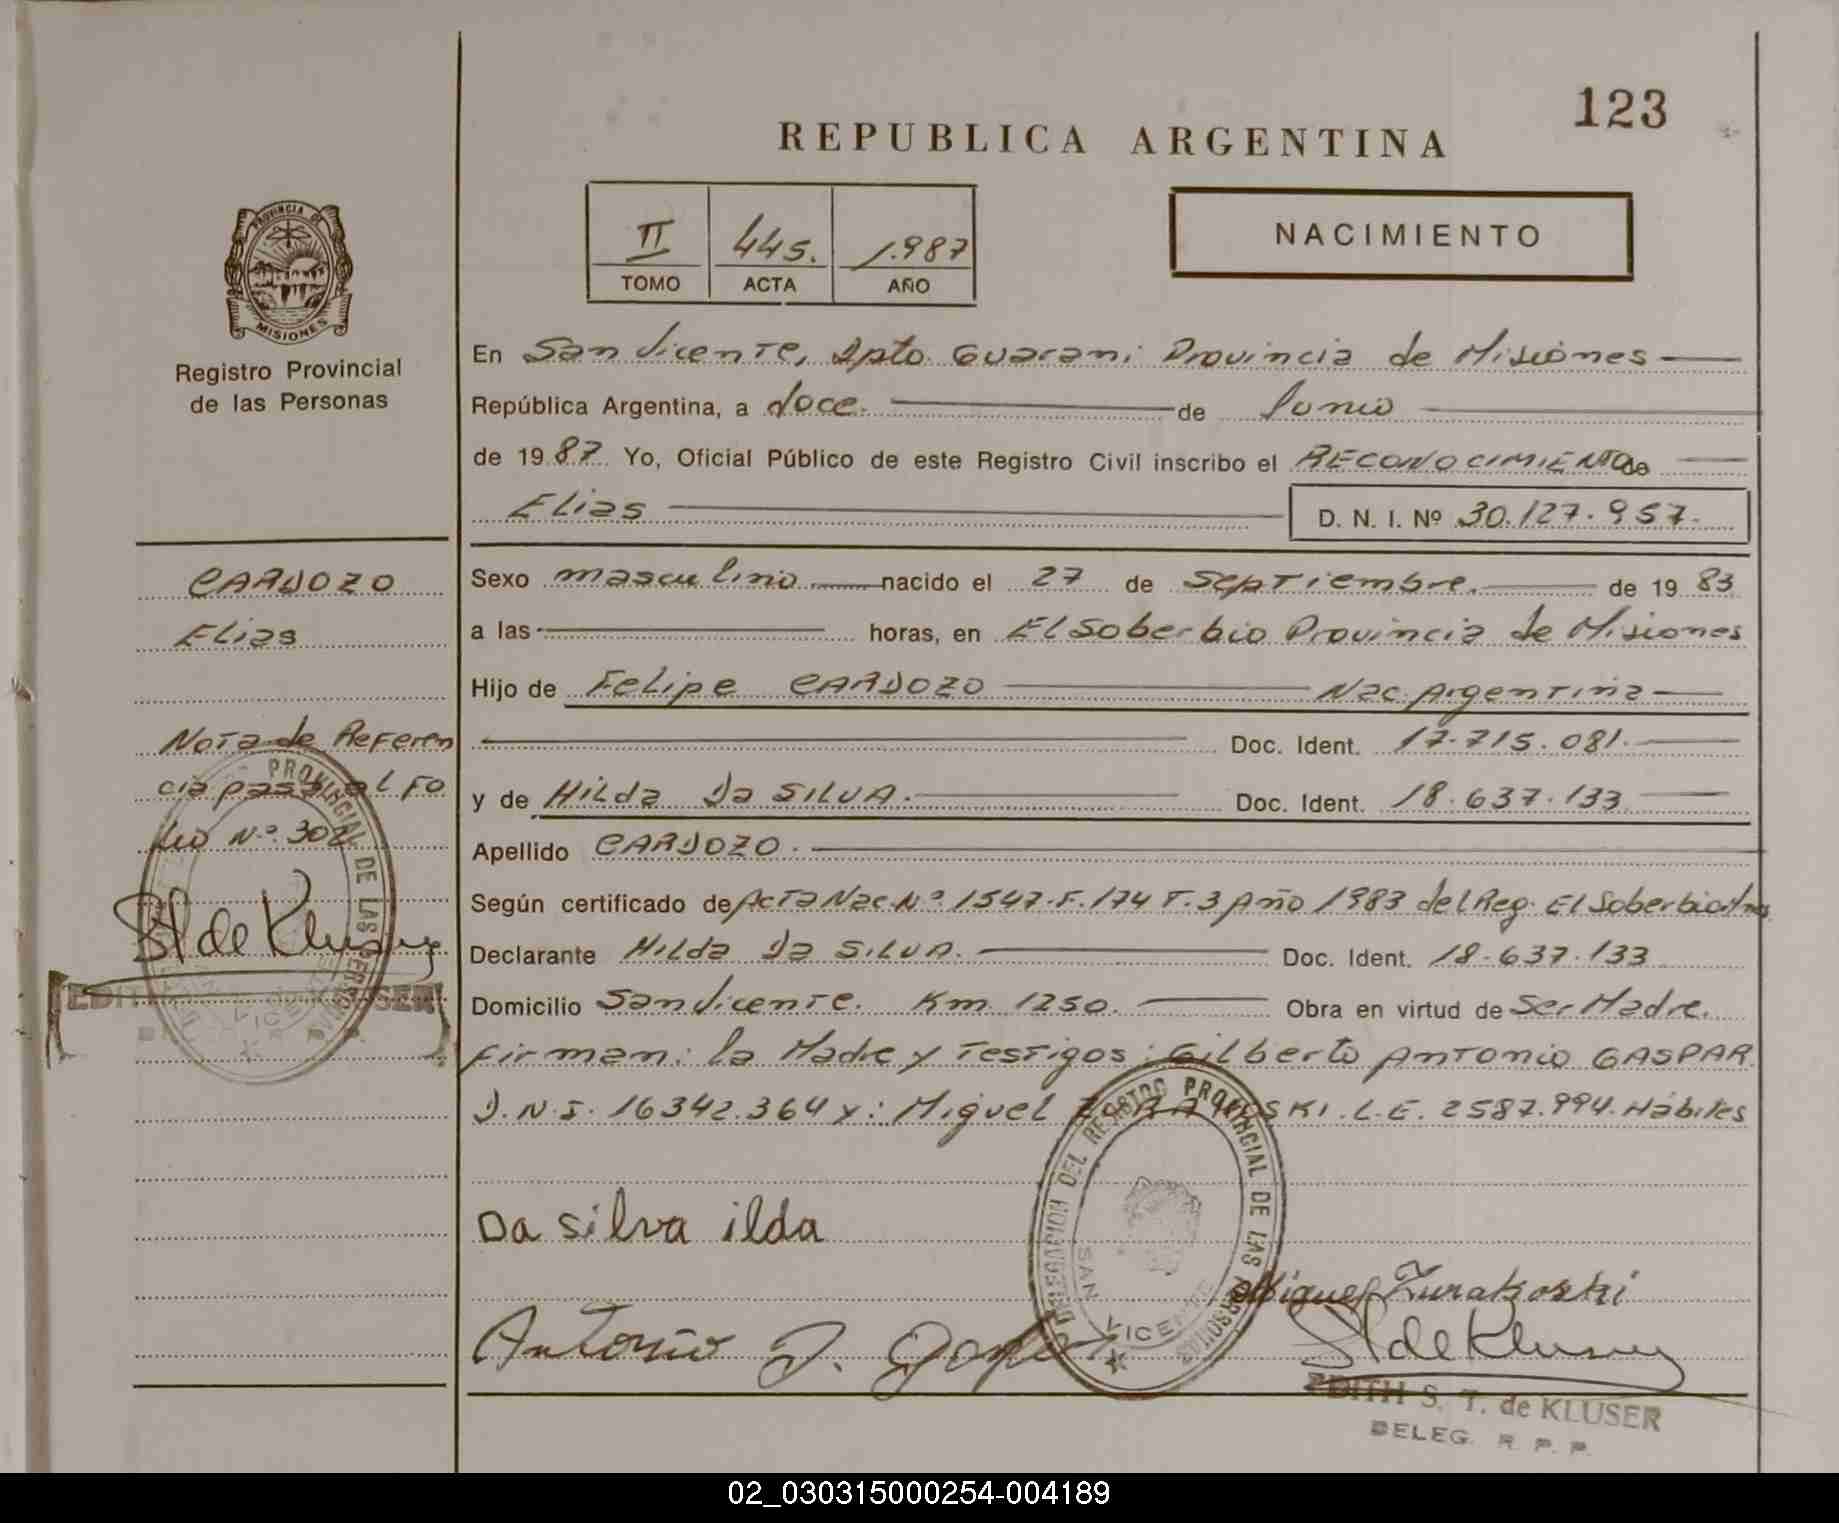 123
REPUBLICA ARGENTINA
II 445. 1.987
TOMO ACTA AÑO
NACIMIENTO
PROVINCIA DE
MISIONES
Registro Provincial
de las Personas
En San Vicente, Dpto. Guarani Provincia de Misiones
República Argentina, a doce. de Junio
de 1987 Yo, Oficial Público de este Registro Civil inscribo el RECONOCIMIENTO de
Elias D. N. I. Nº 30.127.957.
CARDOZO
Elias
Nota de Referen
cia pasa al Fo
lio Nº 302
St de Kluser
EDITH KLUSER
Sexo masculino nacido el 27 de Septiembre. de 1983
a las horas, en El Soberbio Provincia de Misiones
Hijo de Felipe CARDOZO Nac. Argentina
Doc. Ident. 17.715.081.
y de Hilda Da SILVA. Doc. Ident. 18.637.133
Apellido CARDOZO.
Según certificado de Acta Nac. Nº 1547. F. 174 T. 3 Año 1983 del Reg. El Soberbio
Declarante Hilda Da SILVA. Doc. Ident. 18.637.133
Domicilio San Vicente. Km. 1250. Obra en virtud de Ser Madre.
Firman: la Madre y Testigos: Gilberto Antonio GASPAR.
D.N.I. 16342.364 y: Miguel L.E. 2587.994. Hábiles
Da silva ilda
DELEGACION DEL REGISTRO PROVINCIAL DE LAS PERSONAS
SAN VICENTE
Miguel Zurakoski
Antonio
St de Kluser
EDITH S. T. de KLUSER
DELEG. R. P. P.
02_030315000254-004189